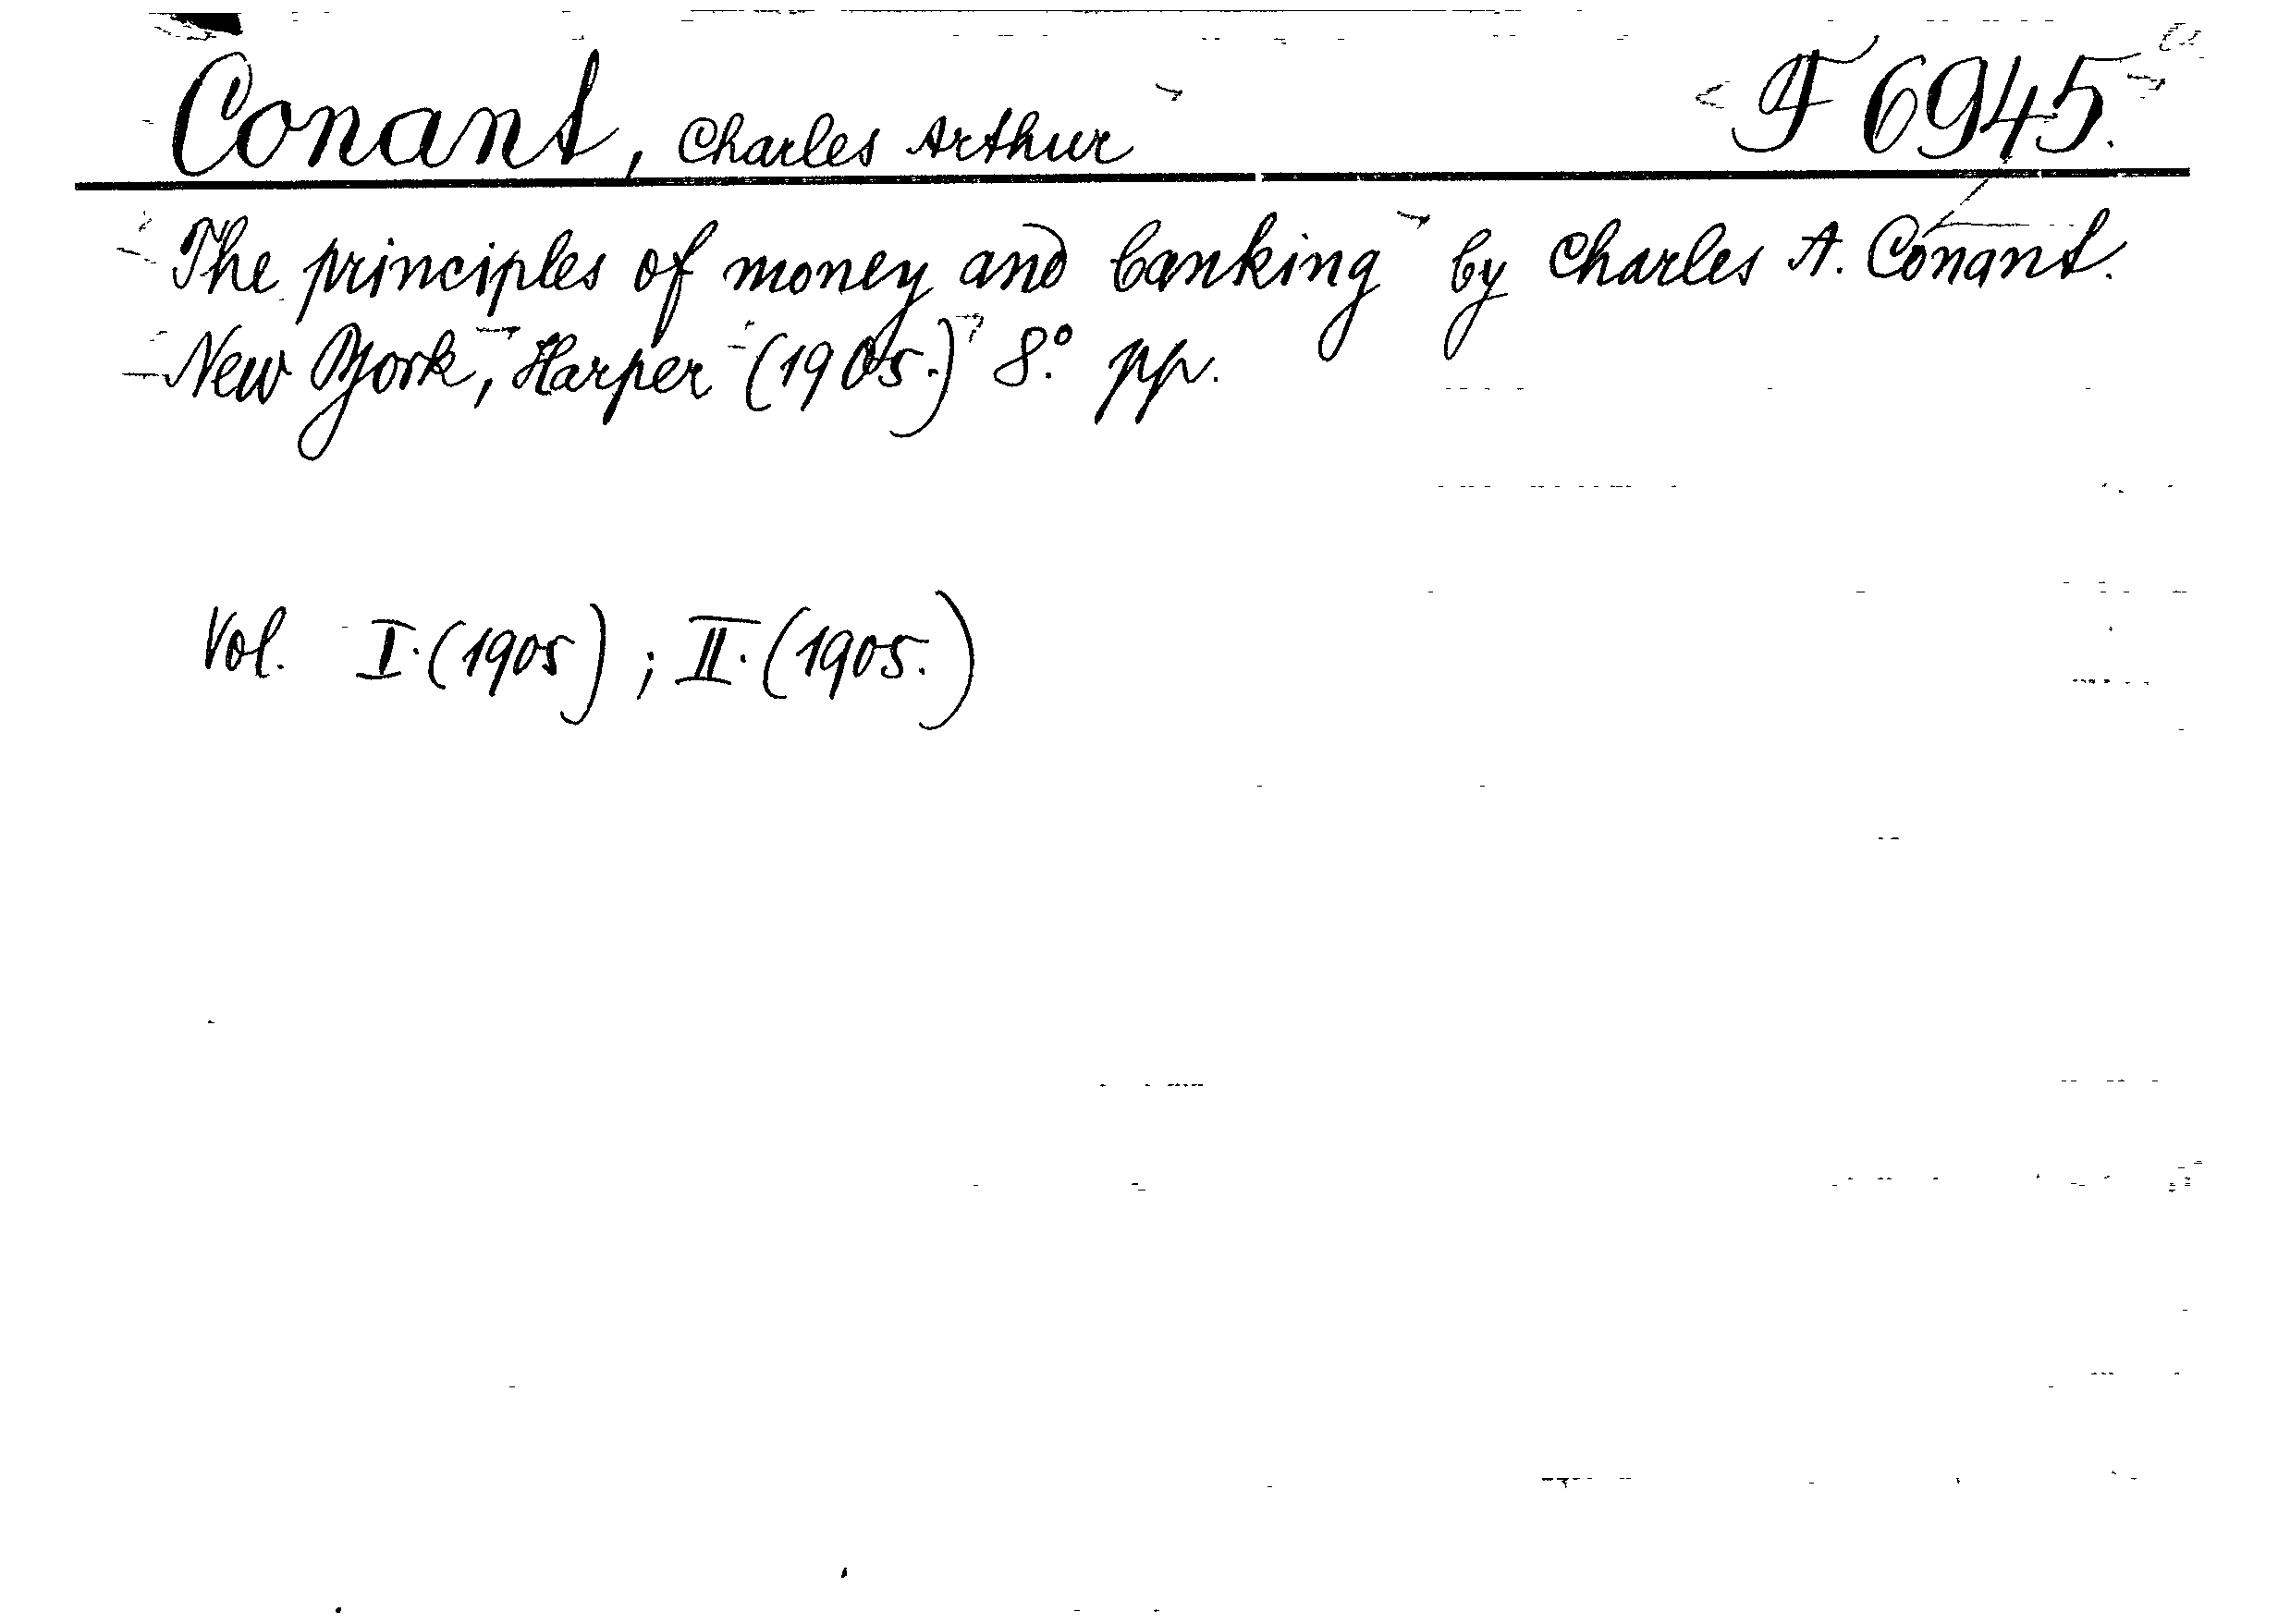 Conant, Charles Arthur F 6945.
The principles of money and banking by Charles A. Conant.
New York, Harper (1905.) 8.° pp.
Vol. I. (1905) ; II. (1905.)